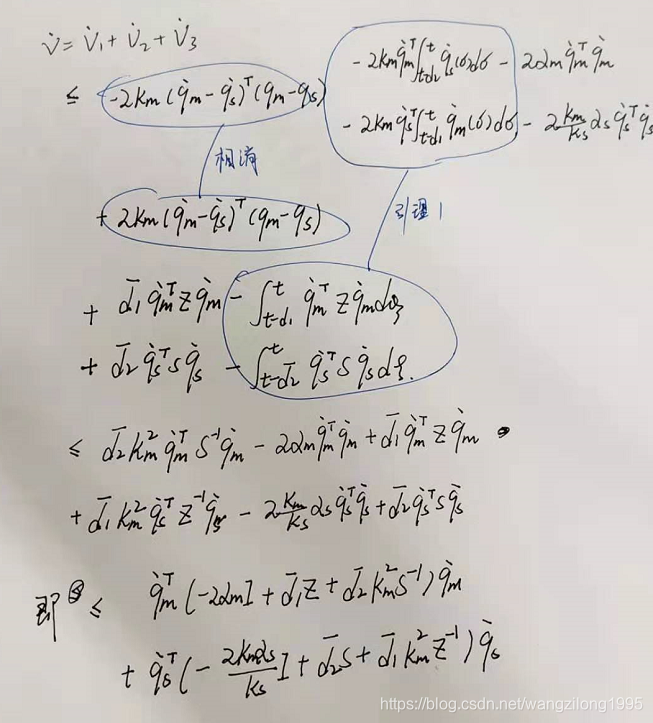 V̇ = V̇₁ + V̇₂ + V̇₃
≤ -2km(q̇m - q̇s)ᵀ(qm - qs) - 2km q̇mᵀ∫_{t-d2}^{t} q̇s(σ)dσ - 2αm q̇mᵀ q̇m
- 2km q̇sᵀ∫_{t-d1}^{t} q̇m(σ)dσ - 2 km/ks αs q̇sᵀ q̇s
相消
+ 2km(q̇m - q̇s)ᵀ(qm - qs)
引理1
+ d̄₁ q̇mᵀ Z q̇m - ∫_{t-d̄1}^{t} q̇mᵀ Z q̇m dξ
+ d̄₂ q̇sᵀ S q̇s - ∫_{t-d̄2}^{t} q̇sᵀ S q̇s dξ.
≤ d̄₂ km² q̇mᵀ S⁻¹ q̇m - 2αm q̇mᵀ q̇m + d̄₁ q̇mᵀ Z q̇m
+ d̄₁ km² q̇sᵀ Z⁻¹ q̇s - 2 km/ks αs q̇sᵀ q̇s + d̄₂ q̇sᵀ S q̇s
即 ≤ q̇mᵀ (-2αm I + d̄₁ Z + d̄₂ km² S⁻¹) q̇m
+ q̇sᵀ (- 2kmαs/ks I + d̄₂ S + d̄₁ km² Z⁻¹) q̇s
https://blog.csdn.net/wangzilong1995